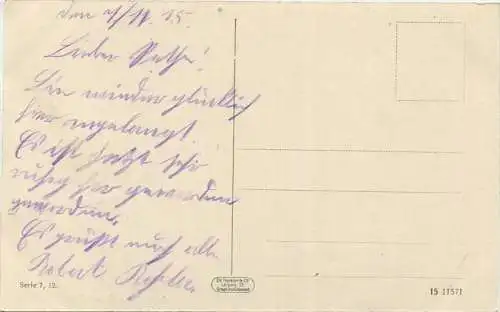 den 1/11. 15.
Lieber
Bin wieder glücklich
hier angelangt.
Es ist jetzt sehr
ruhig hier geworden
geworden.
Es grüßt euch alle
Robert
Serie 7, 12.
15 11571